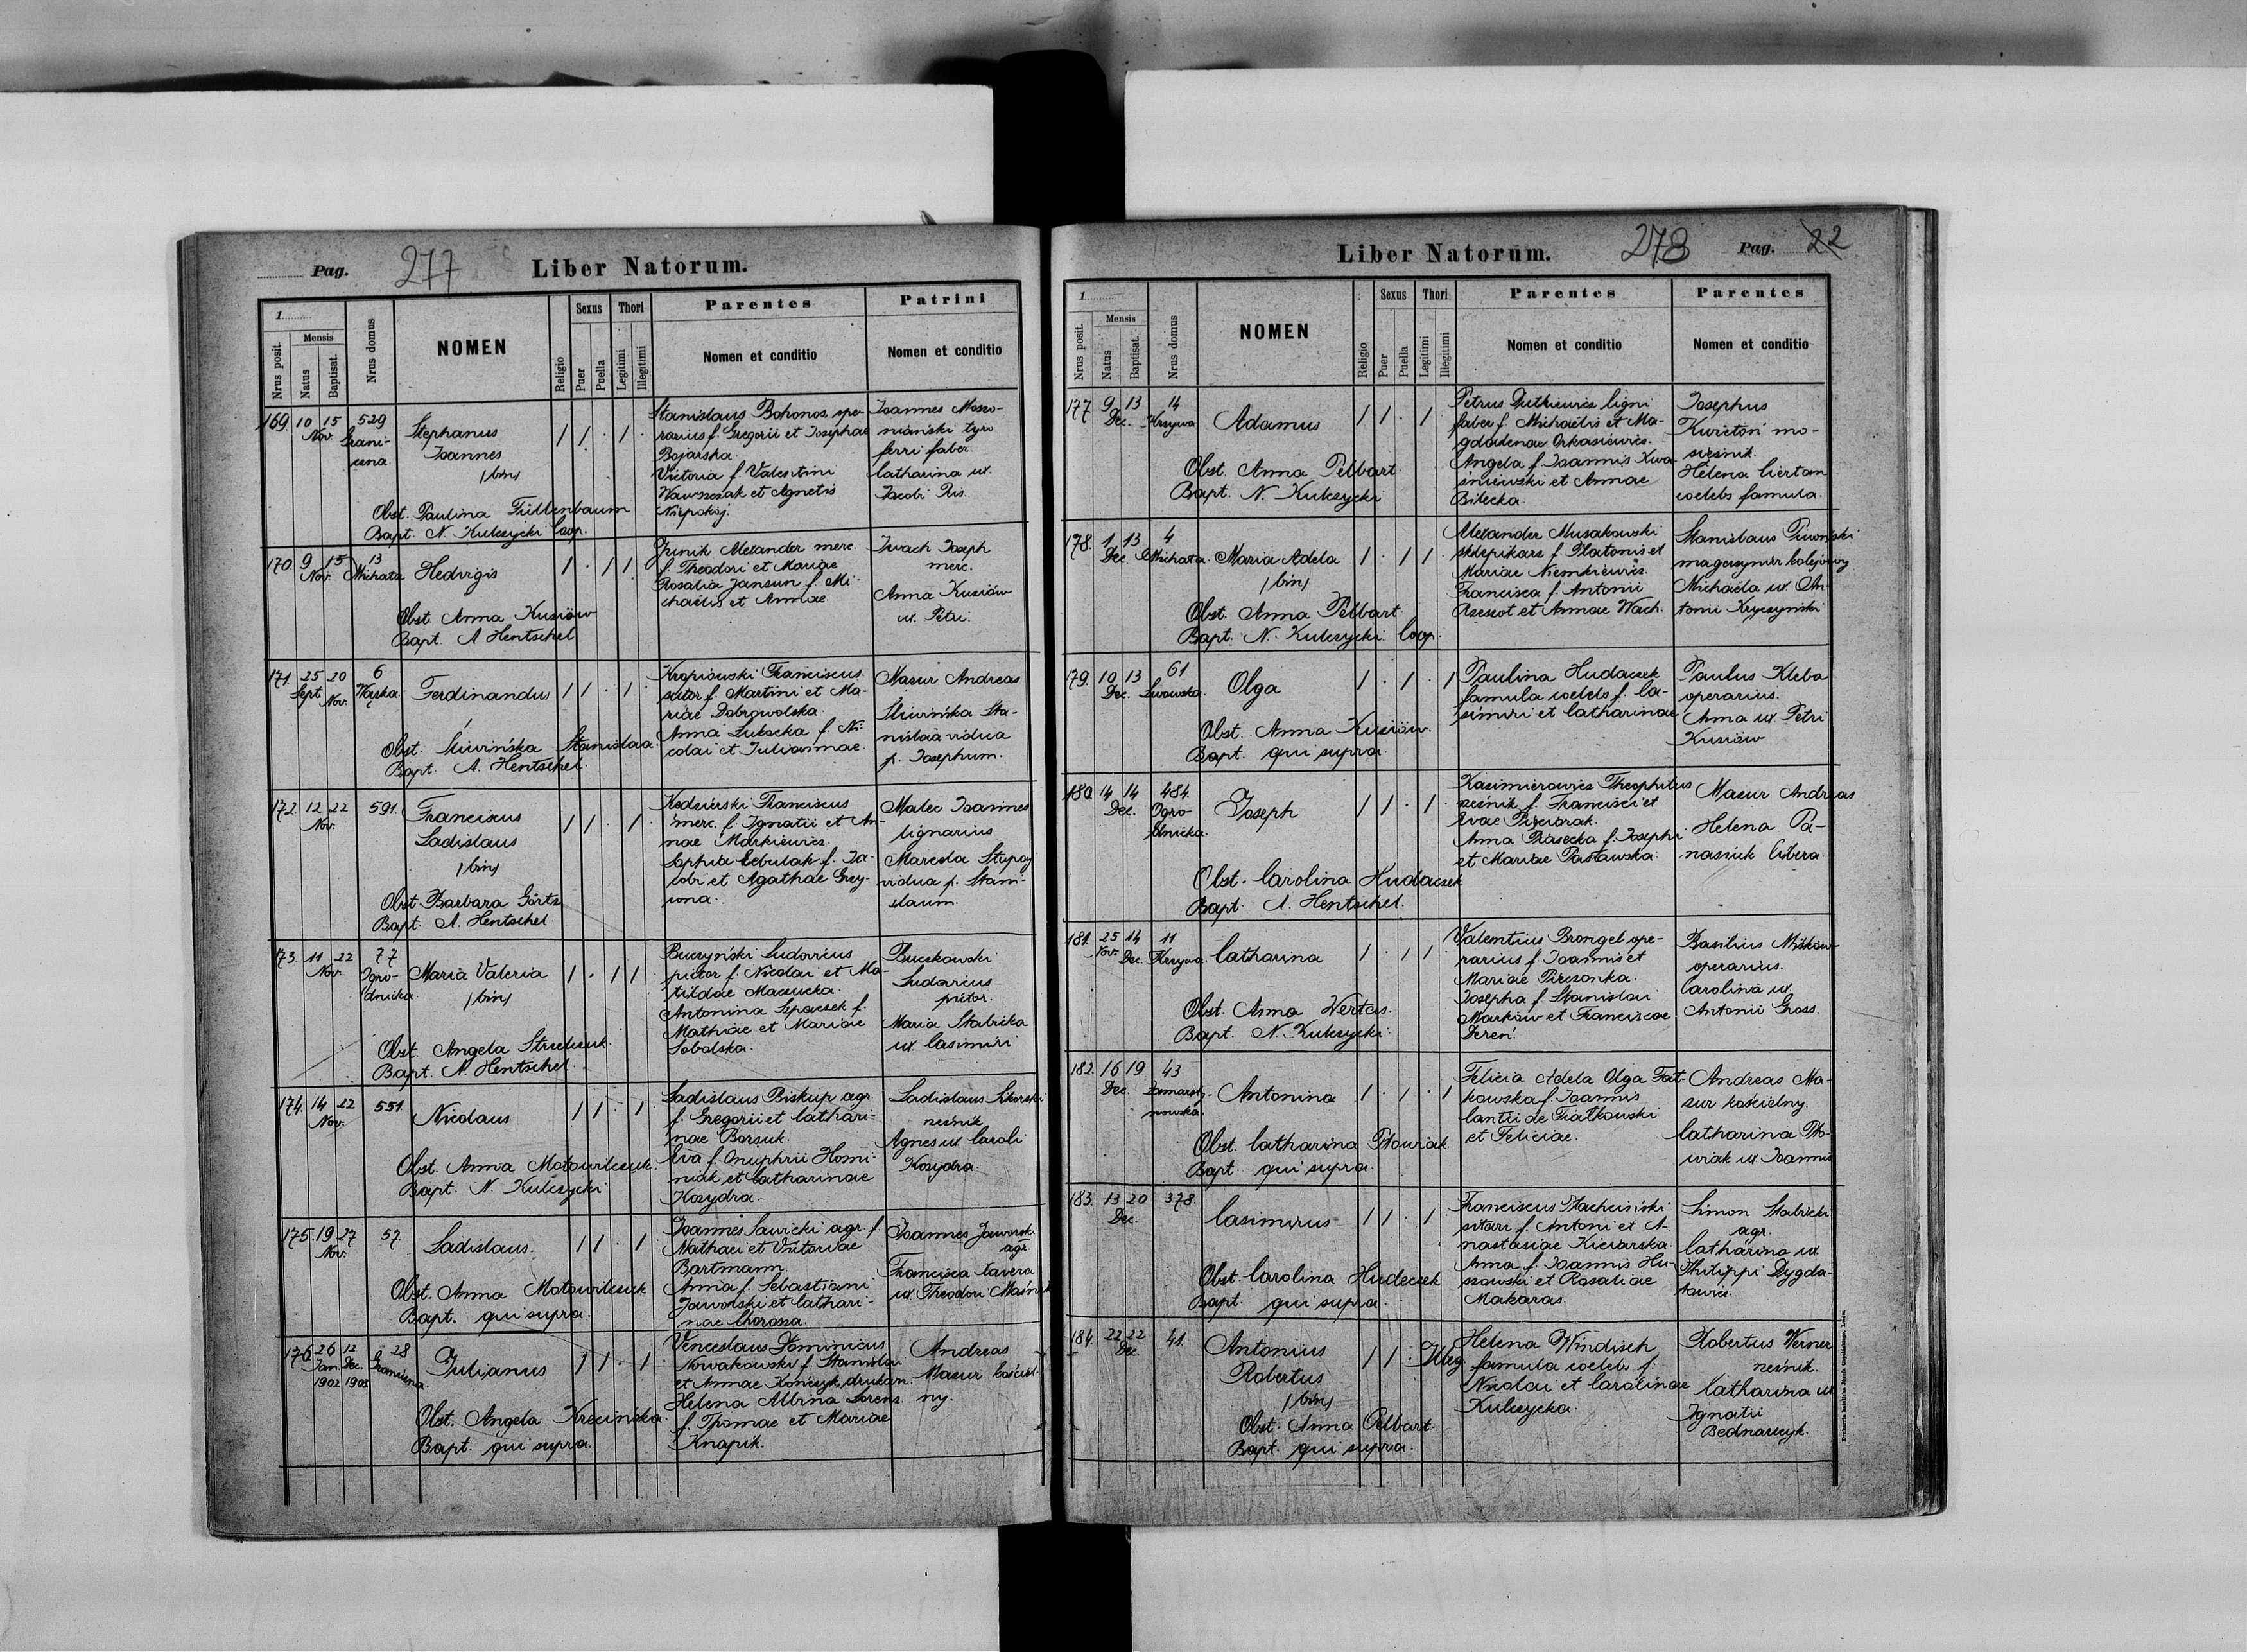 Pag. 277 Liber Natorum.
1
Nrus posit.
Mensis
Natus
Baptisat.
Nrus domus
NOMEN
Religio
Sexus
Puer
Puella
Thori
Legitimi
Illegitimi
Parentes
Nomen et conditio
Patrini
Nomen et conditio
169. 10 15 Nov. 529
Stephanus
Joannes
/bin/
Obst. Paulina Tüllenbaum
Bapt. N. Kulczycki Coop.
Stanislaus Bohonos, ope-
rarius f. Gregorii et Josephae
Bojarska.
Victoria f. Valentini
Wawszczak et Agnetis
Niepokój.
Joannes Moso-
niański tyro
ferri faber
Catharina ux.
Jacobi Ris.
170. 9 15 Nov. 13
Michała
Hedvigis
Obst. Anna Kusiów
Bapt. A Hentschel
Junik Alexander merc.
f. Theodori et Mariae
Rosalia Jansun f. Mi-
chaëlis et Annae
Iwach Joseph
merc.
Anna Kusiów
ux. Petri.
171. 25 Sept. 20 Nov. 6
Wązka
Ferdinandus
Obst. Śliwińska Stanislaa.
Bapt. A. Hentschel.
Kropiowski Franciscus
sutor f. Martini et Ma-
riae Dobrowolska.
Anna Lubocka f. Ni-
colai et Juliannae.
Masur Andreas
Śliwińska Sta-
nislaa vidua
p. Josephum.
172. 12 22 Nov. 591.
Franciscus
Ladislaus
/bin/
Obst. Barbara Görtz
Bapt. A. Hentschel
Kodzierski Franciscus
merc. f. Ignatii et An-
nae Markiewicz.
Sophia Cebulak f. Ja-
cobi et Agathae Grey-
wna.
Malec Joannes
lignarius
Marcela Stupaj
vidua p. Stani-
slaum.
173. 11 22 Nov. 77
Ogro-
dnicka.
Maria Valeria
/bin/
Obst. Angela Strzelczuk.
Bapt. A. Hentschel.
Buczyński Ludovicus
pictor f. Nicolai et Ma-
tildae Maczucka.
Antonina Lepaczek f.
Mathiae et Mariae
Sobolska.
Buczkowski
Ludovicus
pictor.
Maria Stabicka
ux. Casimiri
174. 14 22 Nov. 551.
Nicolaus
Obst. Anna Motowilczuk.
Bapt. N. Kulczycki
Ladislaus Biskup agr.
f. Gregorii et Cathari-
nae Borsuk.
Eva f. Onuphrii Homi-
niak et Catharinae
Kozydra.
Ladislaus Sikorski
rzeźnik
Agnes ux Caroli
Kozydra.
175. 19 27 Nov. 57.
Ladislaus.
Obst. Anna Motowilczuk
Bapt. qui supra.
Joannes Sawicki agr. f.
Mathaei et Victoriae
Bartmann.
Anna f. Sebastiani
Jaworski et Cathari-
nae Chorossa.
Joannes Jaworski
agr.
Francisca Xavera
ux. Theodori
176. 26 Jan. 1902 12 Dec. 1903 28
Graniczna.
Julianus
Obst. Angela Krecińska.
Bapt. qui supra.
Venceslaus Dominicus
Nowakowski f. Stanislai
et Annae Kończyk, drukarz.
Helena Albina Lorenz.
f. Thomae et Mariae
Knapik.
Andreas
Masur kościel-
ny.
Liber Natorum. 278 Pag. 22
1
Nrus posit.
Mensis
Natus
Baptisat.
Nrus domus
NOMEN
Religio
Sexus
Puer
Puella
Thori
Legitimi
Illegitimi
Parentes
Nomen et conditio
Parentes
Nomen et conditio
177. 9 13 Dec. 14
Krzywa
Adamus
Obst. Anna Pelbart.
Bapt. N. Kulczycki
Petrus Dutkiewicz ligni
faber f. Michaëlis et Ma-
gdalenae Orkasiewicz.
Angela f. Joannis Kwa-
śniewski et Annae
Bilecka.
Josephus
Kwiétoń mo-
siężnik.
Helena Ciertan
coelebs famula.
178. 1 13 Dec. 4
Michała.
Maria Adela
/bin/
Obst. Anna Pelbart
Bapt. N. Kulczycki Coop.
Alexander Musakowski
sklepikarz f. Platonis et
Mariae Niemkiewicz.
Francisca f. Antonii
Rzeszot et Annae Wach.
Stanislaus Piwoński
magazynier kolejowy
Michaëla ux An-
tonii Kryczyński
179. 10 13 Dec. 61
Lwowska.
Olga
Obst. Anna Kusiów.
Bapt. qui supra.
Paulina Hudaczek
famula coelebs f. Ca-
simiri et Catharinae
Paulus Kleba
operarius.
Anna ux Petri
Kusiów
180. 14 14 Dec. 484.
Ogro-
dnicka.
Joseph
Obst. Carolina Hudaczek
Bapt. A. Hentschel.
Kazimierowicz Theophilus
rzeźnik f. Francisci et
Evae Pisciorak.
Anna Piasecka f. Josephi
et Mariae Pasławska.
Masur Andreas
Helena Pa-
nasiuk libera.
181. 25 Nov. 14 Dec. 11
Krzywa.
Catharina
Obst. Anna Wertas.
Bapt. N. Kulczycki.
Valentius Brongel ope-
rarius f. Joannis et
Mariae Pieczonka.
Josepha f. Stanislai
Marków et Franciscae
Dereń.
Basilius Miśków
operarius.
Carolina ux.
Antonii Gross.
182. 16 19 Dec. 43
Zamarsty-
nowska.
Antonina
Obst. Catharina Płowiak.
Bapt. qui supra.
Felicia Adela Olga Fiał-
kowska f. Joannis
Cantii de Fiałkowski
et Feliciae.
Andreas Ma-
sur kościelny.
Catharina Pło-
wiak ux Joannis
183. 13 20 Dec. 378.
Casimirus
Obst. Carolina Hudeczek
Bapt. qui supra.
Franciscus Stachciński
f. Antoni et A-
nastasiae Kiciarska.
Anna f. Joannis Hu-
szowski et Rosaliae
Makaras.
Simon Stabicki
agr.
Catharina ux
Philippi Dygda-
łowicz.
184. 22 22 Dec. 41.
Antonius
Robertus
/bin/
Illeg.
Obst. Anna Pelbart.
Bapt. qui supra.
Helena Windisch
famula coelebs f.
Nicolai et Carolinae
Kulczycka.
Robertus Werner
rzeźnik.
Catharina ux
Ignatii
Bednarczyk.